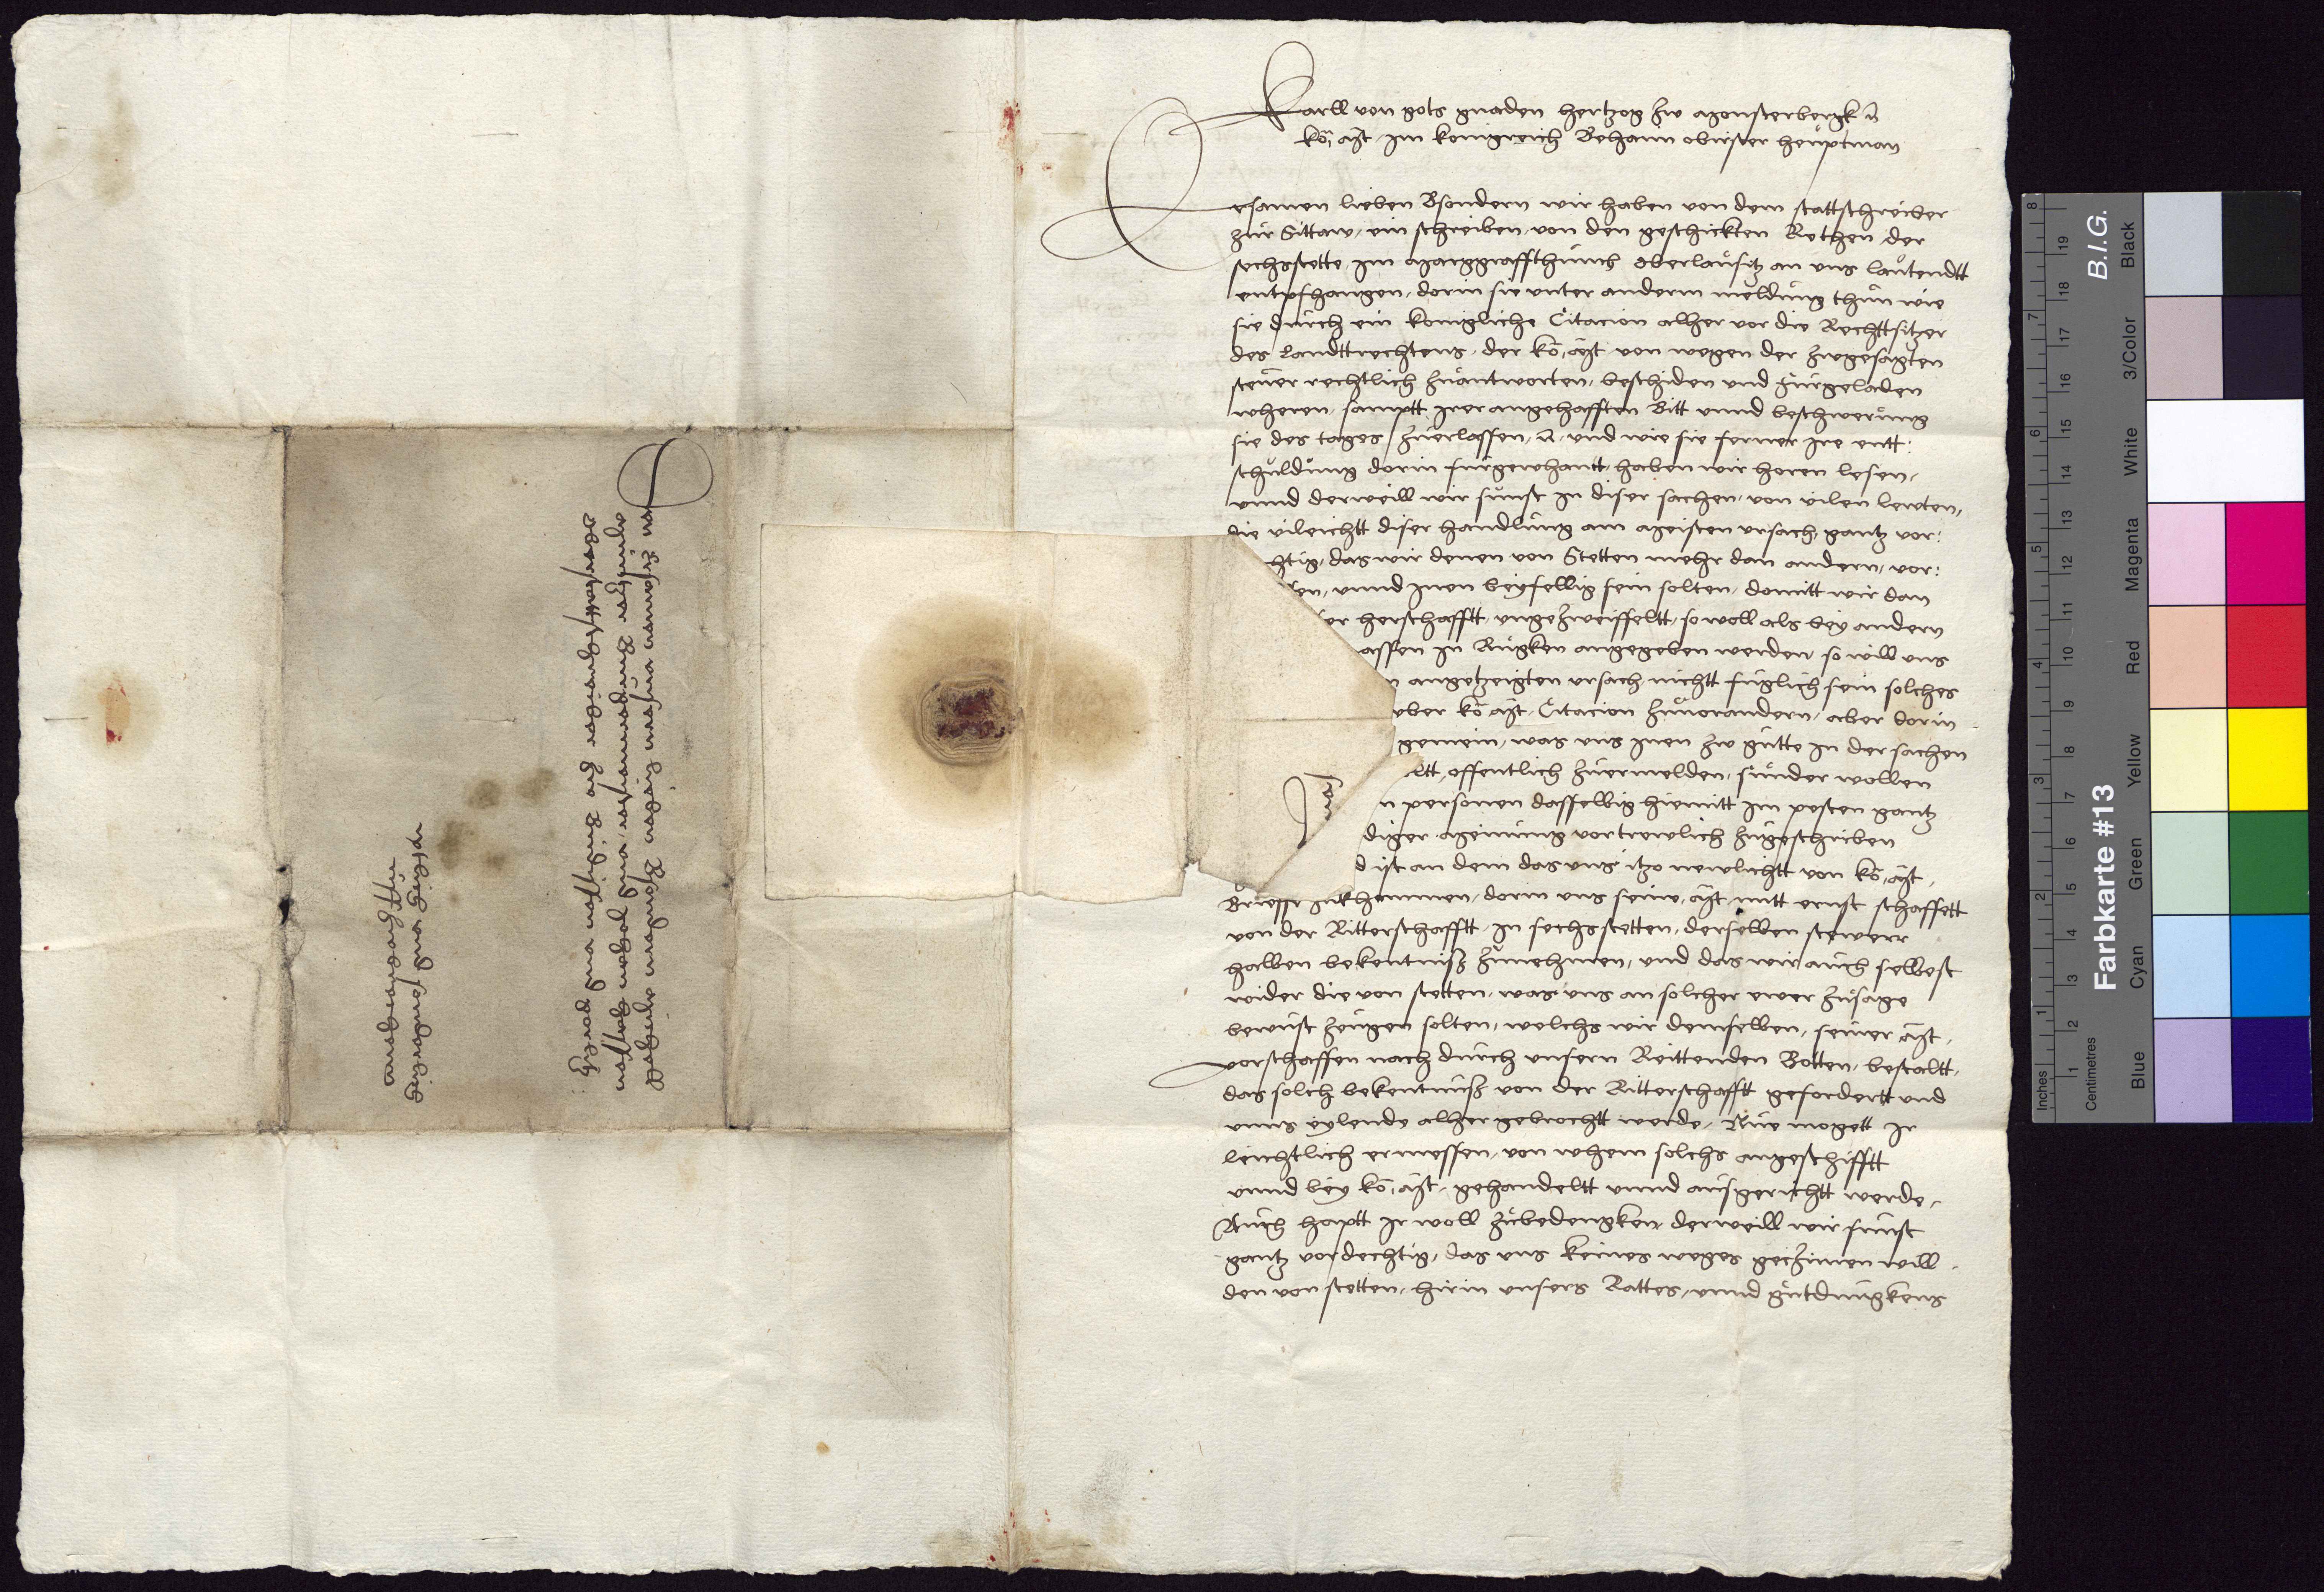 Karll von gots gnaden hertzog zw Monsterbergk
ko Mt im konigreich Behaim obrister heuptman
Ersamen lieben Bsondern wir haben von dem stattschreiber
zur Sittaw, ein schreiben, von den geschickten Rethen der
sechsstette im Marggraffthumb Oberlausitz an uns lautendtt
entpfhangen, dorin sie unter anderm meldung thun wie
sie durch ein konigliche Citacion alher vor die Rechttsitzer
des Landttrechtens, der ko, Mt von wegen der zwgesagten
steuer rechtlich zuantworten, beschiden und furgeladen
wheren, samptt irer angehafften Bitt unnd beschwerung
sie des tages zuerlassen, und wie sie ferner ire entt:
schuldung dorin furgewhantt, haben wir horen lesen,
unnd derweill wir sunst in diser sachen, von vilen lewten,
die vileichtt diser handlung am meisten ursach, gantz vor:
htig, das wir denen von Stetten mehr dan andern, vor:
en, unnd inen beyfellig sein solten, domitt wir dan
er herschafftt, ungezweiffeltt, so woll als bey andern
assen in Rugken angegeben werden so will uns
n angetzeigten ursach nichtt fuglich sein solches
uber ko Mt, Citacion zuvorandern, aber dorin
gemein, was uns inen zw gutte in der sachen
ltt, offentlich zuermelden, sunder wollen
n personen dasselbig hiemitt im pesten gantz
diger meinung vortrewlich zugeschriben
d ist an dem das uns itzo newlichtt von ko, Mt,
Brieffe zukhummen, dorin uns seine, Mt, mitt ernst schaffett
von der Ritterschafftt, in sechsstetten, derselben stewerr
halben bekentnisz zunehmen, und das wir auch selbest
wider die von stetten, was uns an solcher ewer zusage
bewust zeugen solten, welchs wir demselben, seiner Mt,
vorschaffen nach durch unsern Reittenden Botten, bestaltt,
das solch bekentnusz von der Ritterschafftt gefordertt und
unns eylende alher gebrochtt werde, Nue mogett ir
leichtlich ermessen, von whem solchs angeschifftt
unnd bey ko, Mt, gehandeltt unnd ausgerichtt werde,
Auch haptt ir woll zubedengken, derweill wir sunst
gantz vordechtig, das uns keines weges gezimen will
den von stetten, hirin unsers Rattes, unnd gutdungkens
Den Ersamen unsern lieben Besondern Michell
und Johan Hassen
Oberstattschreiber zw Sittaw und Gorlitz